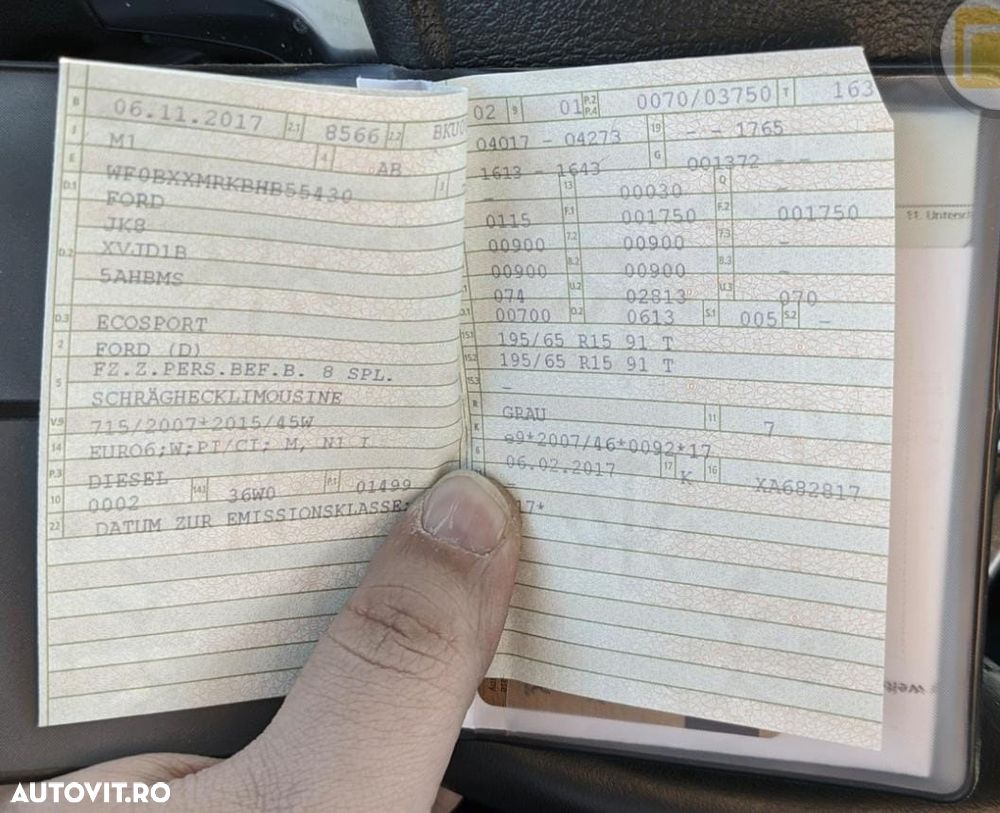 B 06.11.2017 2.1 8566 2.2
J M1 4 AB
E WF0BXXMRKBHB55430 3 -
D.1 FORD
JK8
D.2 XVJD1B
5AHBMS
D.3 ECOSPORT
2 FORD (D)
5 FZ.Z.PERS.BEF.B. 8 SPL.
SCHRÄGHECKLIMOUSINE
V.9 715/2007*2015/45W
14 EURO6;W;PI/CI; M, N1 I
P.3 DIESEL
10 0002 14.1 36W0 P.1 01499
22 DATUM ZUR EMISSIONSKLASSE:
02 9 01 P.2 P.4 0070/03750 T 163
04017 - 04273 19 - - 1765
1613 - 1643 G 001372 - -
- 13 00030 Q -
0115 F.1 001750 F.2 001750
00900 7.2 00900 7.3 -
00900 8.2 00900 8.3 -
074 U.2 02813 U.3 070
00700 O.2 0613 S.1 005 S.2 -
15.1 195/65 R15 91 T
15.2 195/65 R15 91 T
15.3 -
R GRAU 11 7
K e9*2007/46*0092*17
6 06.02.2017 17 K 16 XA682817
-
17*
11. Untersch
AUTOVIT.RO